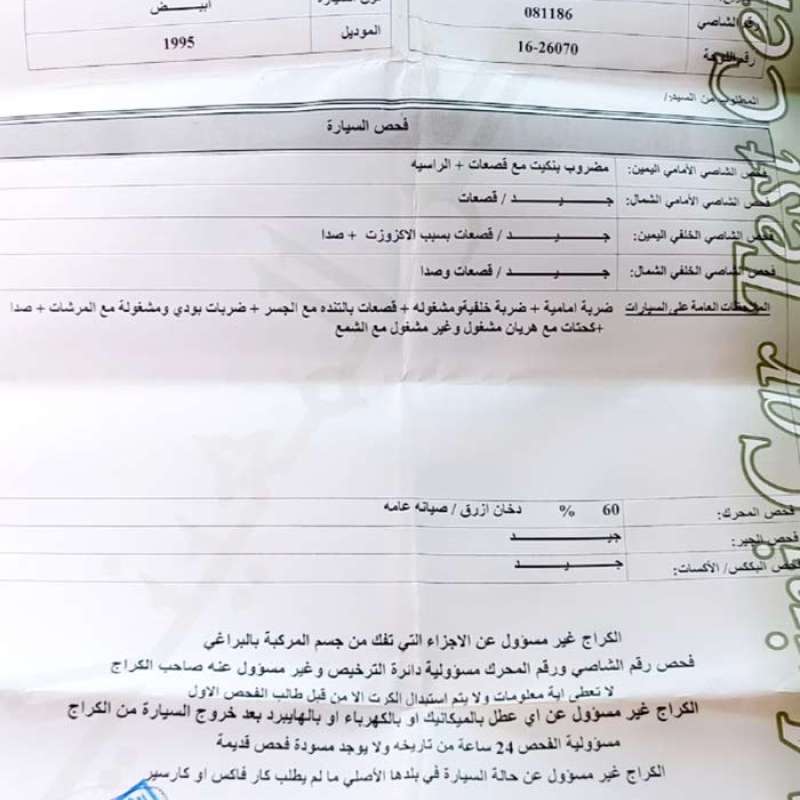 أبيـــض
081186
رقم الشاصي
الموديل
1995
16-26070
المطلوب من السيد/
فحص السيارة
فحص الشاصي الأمامي اليمين: مضروب بنكيت مع قصعات + الراسيه
فحص الشاصي الأمامي الشمال: جـــــيـــــــد / قصعات
فحص الشاصي الخلفي اليمين: جـــــيـــــــد / قصعات بسبب الاكزوزت + صدا
فحص الشاصي الخلفي الشمال: جـــــيـــــــد / قصعات وصدا
الملاحظات العامة على السيارات ضربة امامية + ضربة خلفيةومشغوله + قصعات بالتنده مع الجسر + ضربات بودي ومشغولة مع المرشات + صدا
+كحتات مع هريان مشغول وغير مشغول مع الشمع
فحص المحرك: 60 % دخان ازرق / صيانه عامه
فحص الجير: جيـــــــد
فحص البككس/ الأكسات: جـــــيـــــــد
الكراج غير مسؤول عن الاجزاء التي تفك من جسم المركبة بالبراغي
فحص رقم الشاصي ورقم المحرك مسؤولية دائرة الترخيص وغير مسؤول عنه صاحب الكراج
لا تعطى اية معلومات ولا يتم استبدال الكرت الا من قبل طالب الفحص الاول
الكراج غير مسؤول عن اي عطل بالميكانيك او بالكهرباء او بالهايبرد بعد خروج السيارة من الكراج
مسؤولية الفحص 24 ساعة من تاريخه ولا يوجد مسودة فحص قديمة
الكراج غير مسؤول عن حالة السيارة في بلدها الأصلي ما لم يطلب كار فاكس او كارسير
Car Test Cen